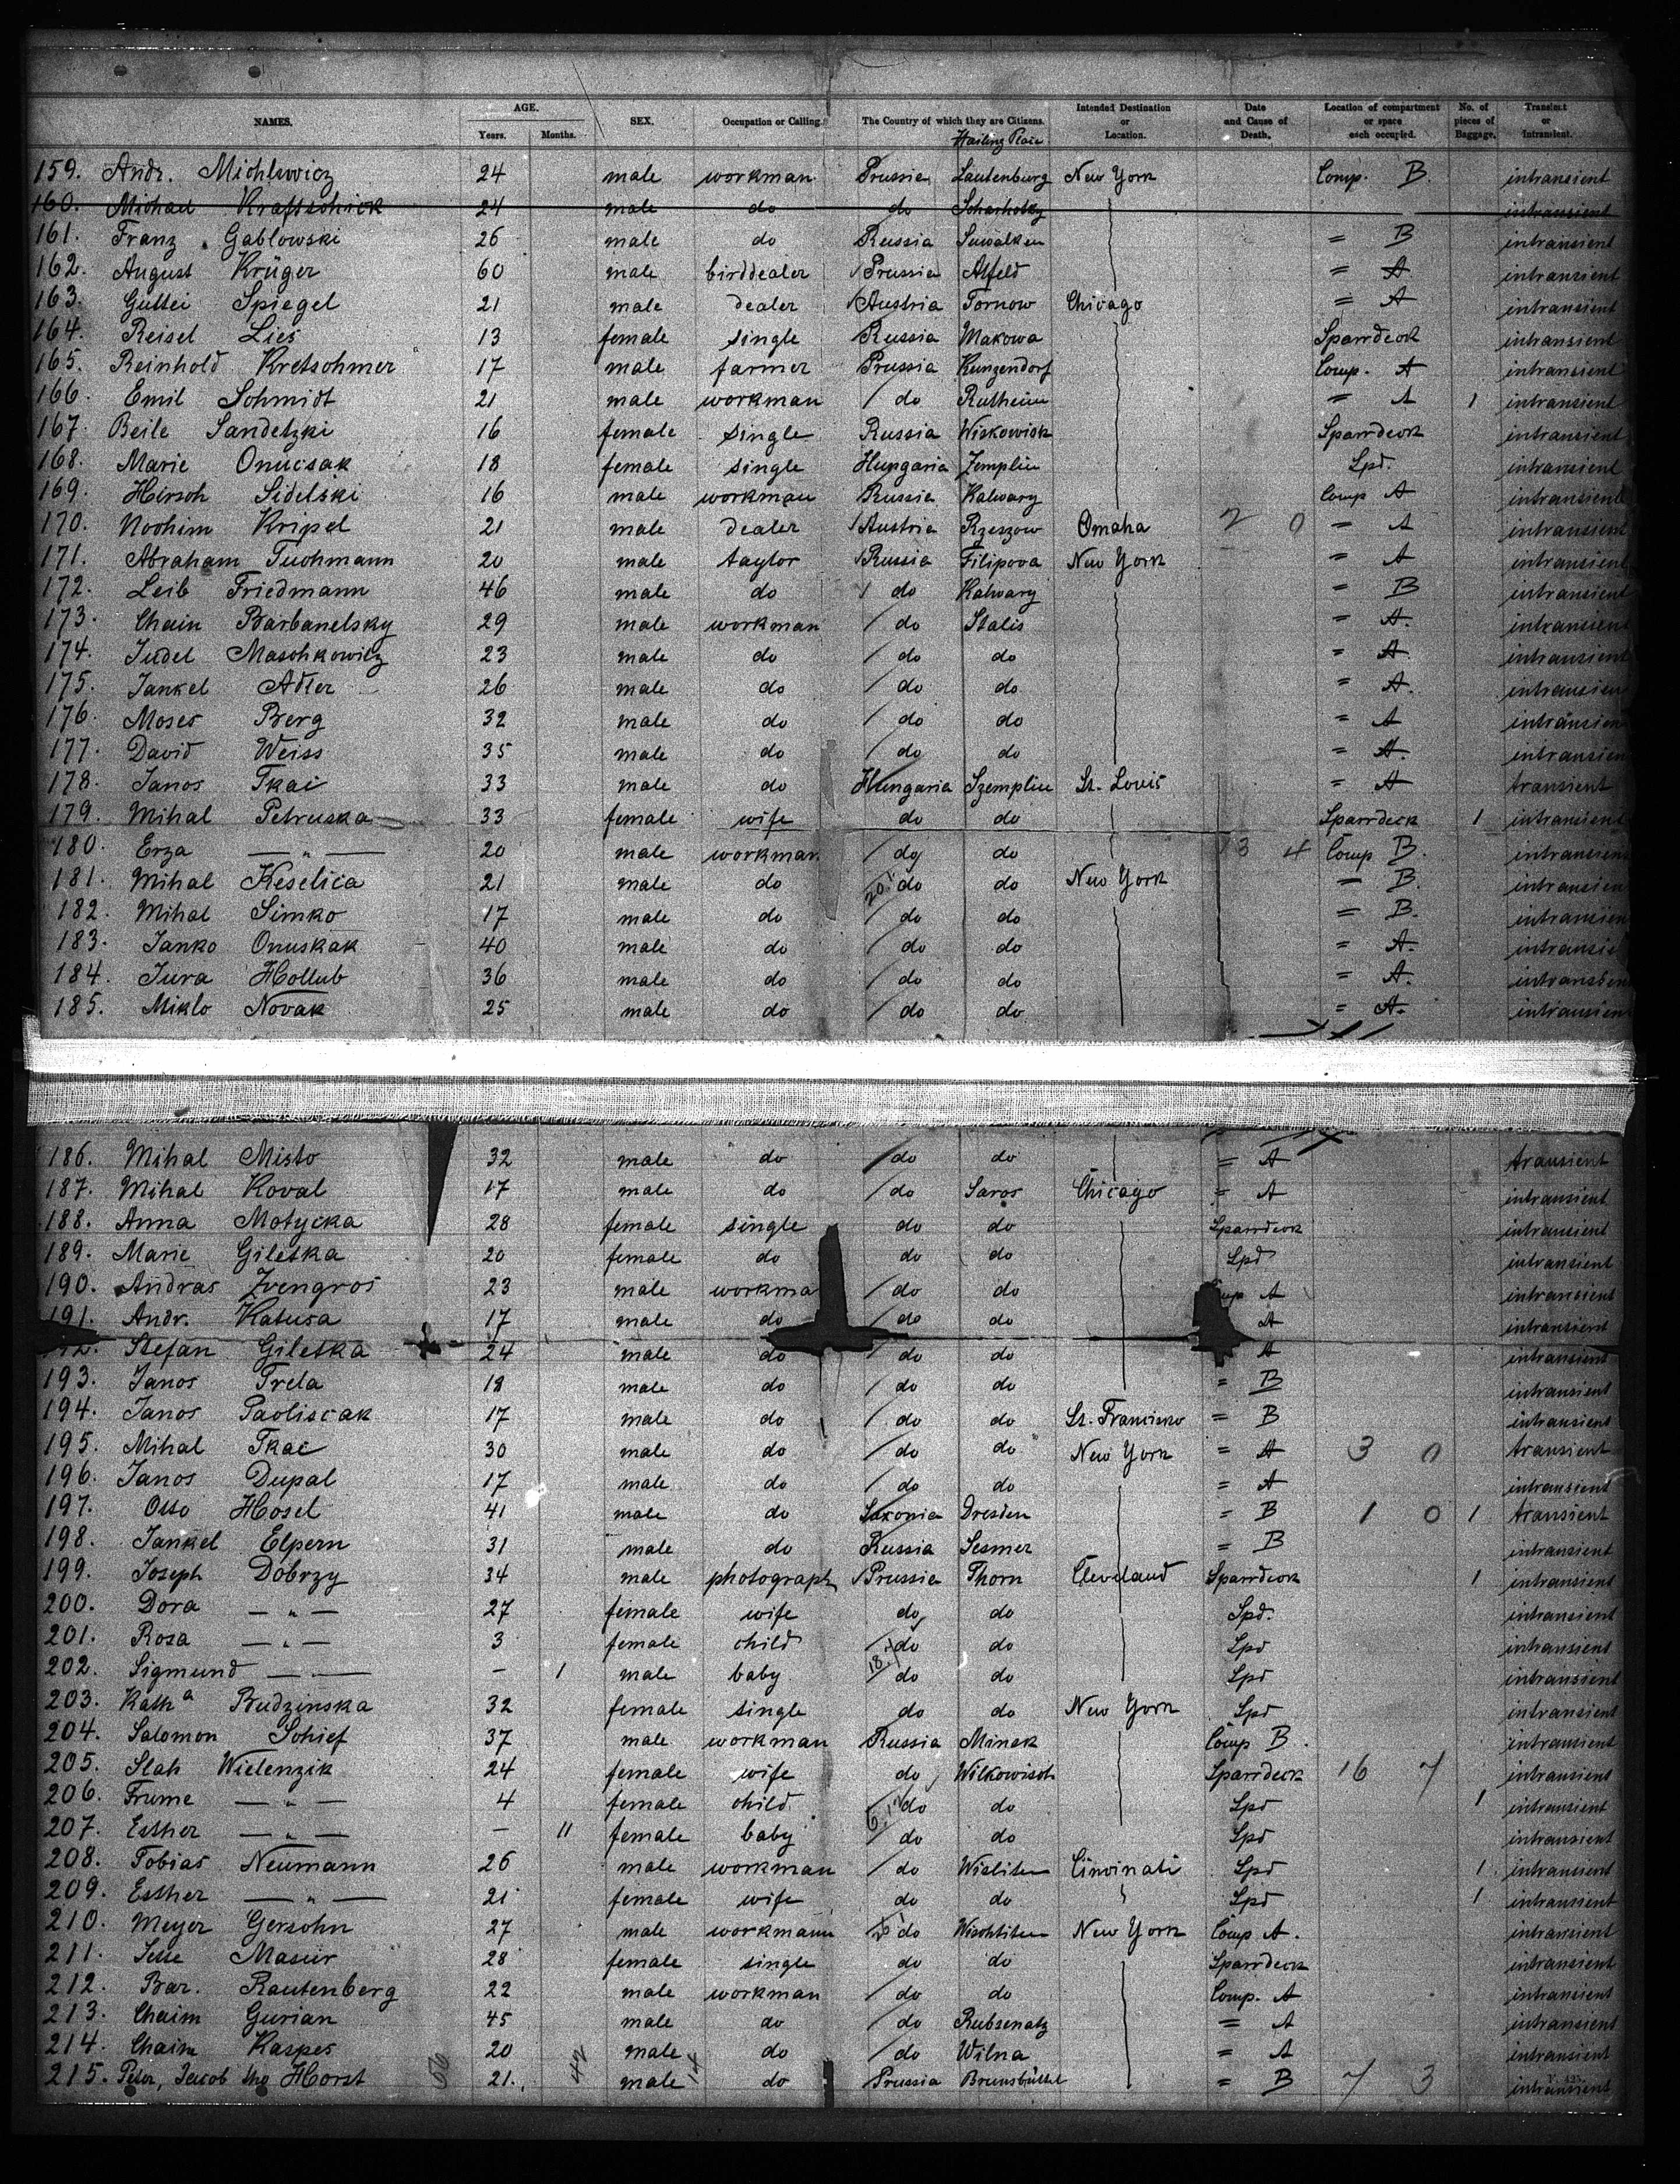 NAMES. AGE. Years. Months. SEX. Occupation or Calling. The Country of which they are Citizens. Hailing Place Intended Destination or Location. Date and Cause of Death. Location of compartment or space each occupied. No. of pieces of Baggage. Transient or Intransient.
159. Andr. Michlowicz 24 male workman Prussia Lautenburg New York Comp. B. intransient
160. Michael Kraftschick 24 male do do intransient
161. Franz Gablowski 26 male do Russia Suwalken = B intransient
162. August Krüger 60 male birddealer Prussia Alfeld = A intransient
163. Guttei Spiegel 21 male dealer Austria Tornow Chicago = A intransient
164. Reisel Lies 13 female single Russia Makowa Sparrdeck intransient
165. Reinhold Kretschmer 17 male farmer Prussia Kunzendorf Comp. A intransient
166. Emil Schmidt 21 male workman do = A 1 intransient
167. Beile Sandetzki 16 female single Russia Wiskowisk Sparrdeck intransient
168. Marie Onucsak 18 female single Hungaria Zemplin Spd. intransient
169. Hirsch Sidelski 16 male workman Russia Kalwary Comp A intransient
170. Nochim Kripel 21 male dealer Austria Rzeszow Omaha 2 0 = A intransient
171. Abraham Tuchmann 20 male taylor Russia Filipova New York = A intransient
172. Leib Friedmann 46 male do do Kalwary = B intransient
173. Chain Barbanelsky 29 male workman do Stalis = A. intransient
174. Judel Maschkowicz 23 male do do do = A. intransient
175. Jankel Adler 26 male do do do = A. intransient
176. Moses Berg 32 male do do do = A intransient
177. David Weiss 35 male do do do = A. intransient
178. Janos Tkac 33 male do Hungaria Szemplin St. Louis = A transient
179. Mihal Petruska 33 female wife do do Sparrdeck 1 intransient
180. Erza — " — 20 male workman do do 13 4 Comp B. intransient
181. Mihal Keselica 21 male do 20. do do New York = B. intransient
182. Mihal Simko 17 male do do do = B. intransient
183. Janko Onuskak 40 male do do do = A. intransient
184. Jura Hollub 36 male do do do = A. intransient
185. Miklo Novak 25 male do do do = A. intransient
186. Mihal Misto 32 male do do do = A transient
187. Mihal Koval 17 male do do Saros Chicago = A intransient
188. Anna Motycka 28 female single do do Sparrdeck intransient
189. Marie Giletka 20 female do do do Spd intransient
190. Andras Zvengros 23 male workma do do A intransient
191. Andr. Katusa 17 male do do do A intransient
Stefan Giletka 24 male do do do A intransient
193. Janos Trela 18 male do do do = B intransient
194. Janos Paoliscak 17 male do do do St. Francisko = B intransient
195. Mihal Tkac 30 male do do do New York = A 3 0 transient
196. Janos Dupal 17 male do do do = A intransient
197. Otto Hosel 41 male do Saxonia Dresden = B 1 0 1 transient
198. Jankel Elpern 31 male do Russia Sesmer = B intransient
199. Joseph Dobrzy 34 male photograph Prussia Thorn Cleveland Sparrdeck 1 intransient
200. Dora — " — 27 female wife do do Spd. intransient
201. Rosa — " — 3 female child do do Spd intransient
202. Sigmund — " — – 1 male baby 18. do do Spd intransient
203. Kath a Budzinska 32 female single do do New York Spd intransient
204. Salomon Schief 37 male workman Russia Minsk Comp B. intransient
205. Slah Wielenzik 24 female wife do Wilkowisch Sparrdeck 16 7 intransient
206. Frume — " — 4 female child do do Spd 1 intransient
207. Esther — " — – 11 female baby do do Spd intransient
208. Tobias Neumann 26 male workman do Cincinati Spd 1 intransient
209. Esther — " — 21 female wife do do Spd 1 intransient
210. Meyer Gersohn 27 male workmann do Wischtiten New York Comp A. intransient
211. Masur 28 female single do do Sparrdeck intransient
212. Bar. Rautenberg 22 male workman do do Comp. A intransient
213. Chaim Gurian 45 male do do Rubsenatz = A intransient
214. Chaim Kaspes 20 male do do Wilna = A intransient
215. Peter, Jacob Horst 56 21. 42 male 14 do Prussia Brunsbüttel = B 7 3 intransient